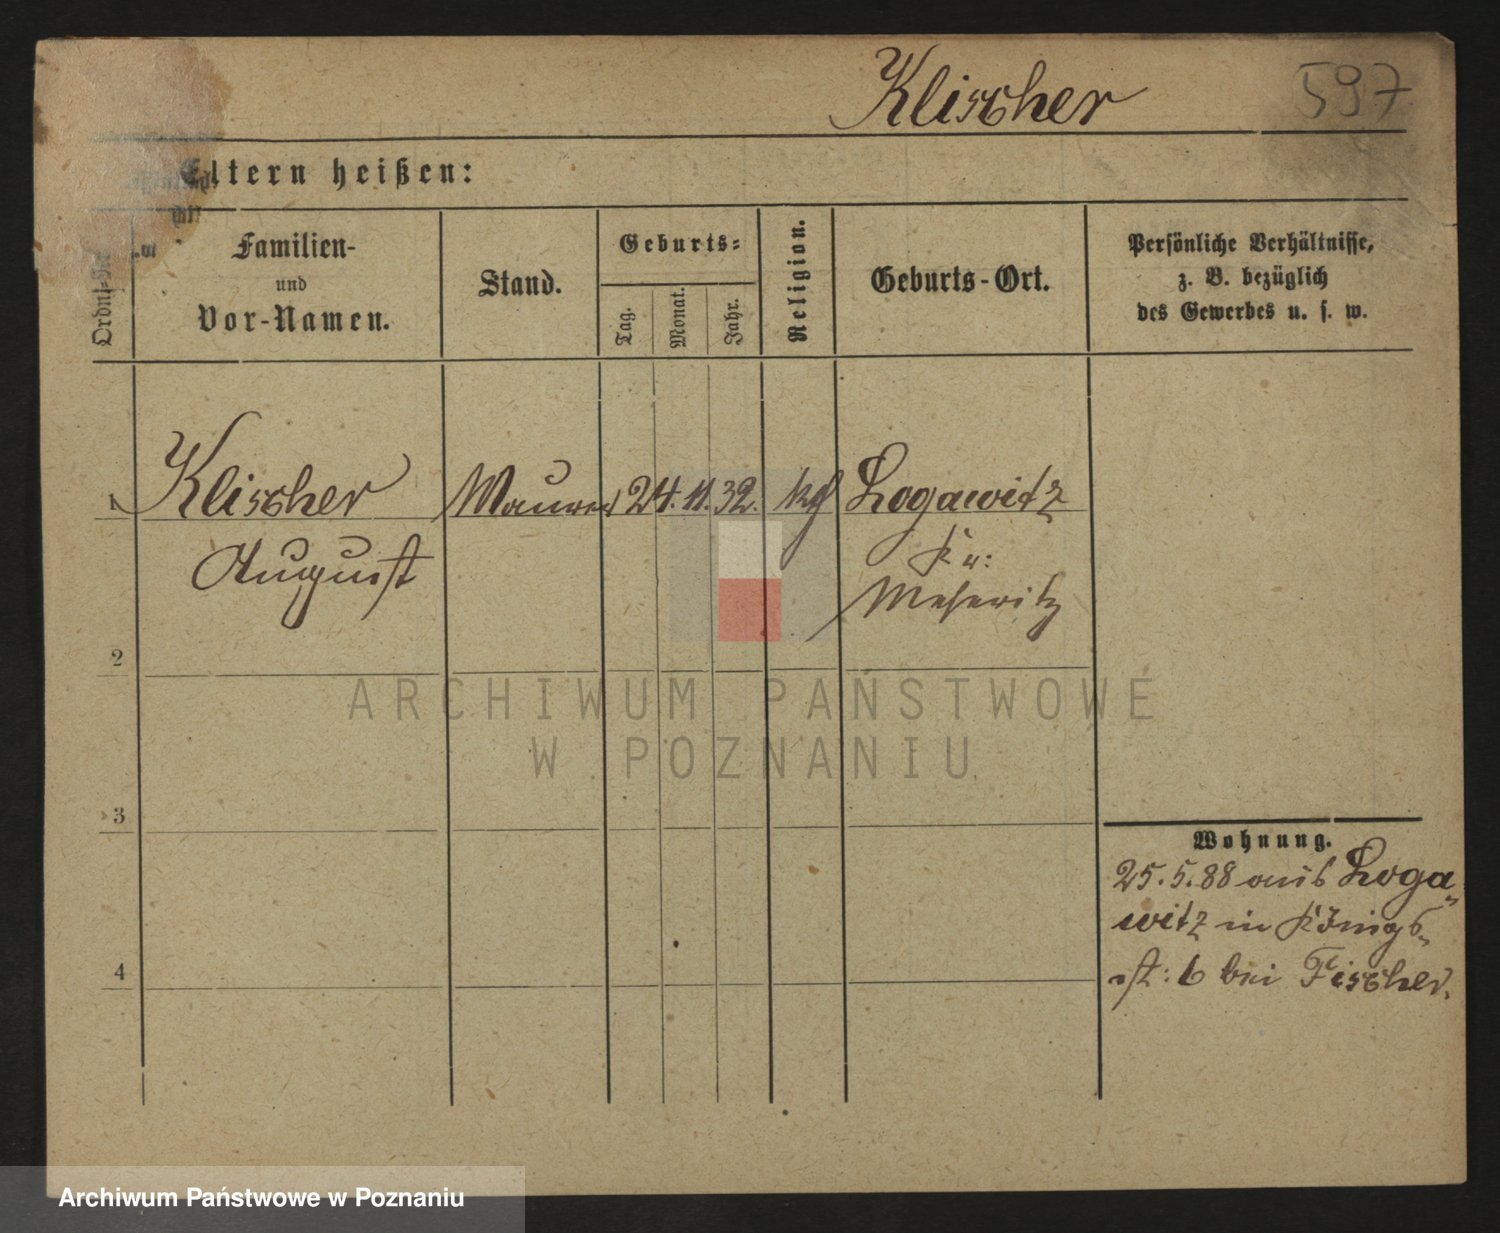 Klischer 597
Eltern heißen:
Ordngs-Nr.
Familien-
und
Vor-Namen.
Stand.
Geburts-
Tag.
Monat.
Jahr.
Religion.
Geburts-Ort.
Persönliche Verhältnisse,
z. B. bezüglich
des Gewerbes u. s. w.
1 Klischer Maurer 24. 11. 32. kgf Logawitz
August Kr:
Meseritz
2
3
4
Wohnung.
25.5.88 aus Loga
witz in Königs-
st: 6 bei Fischer.
ARCHIWUM PAŃSTWOWE
W POZNANIU
Archiwum Państwowe w Poznaniu